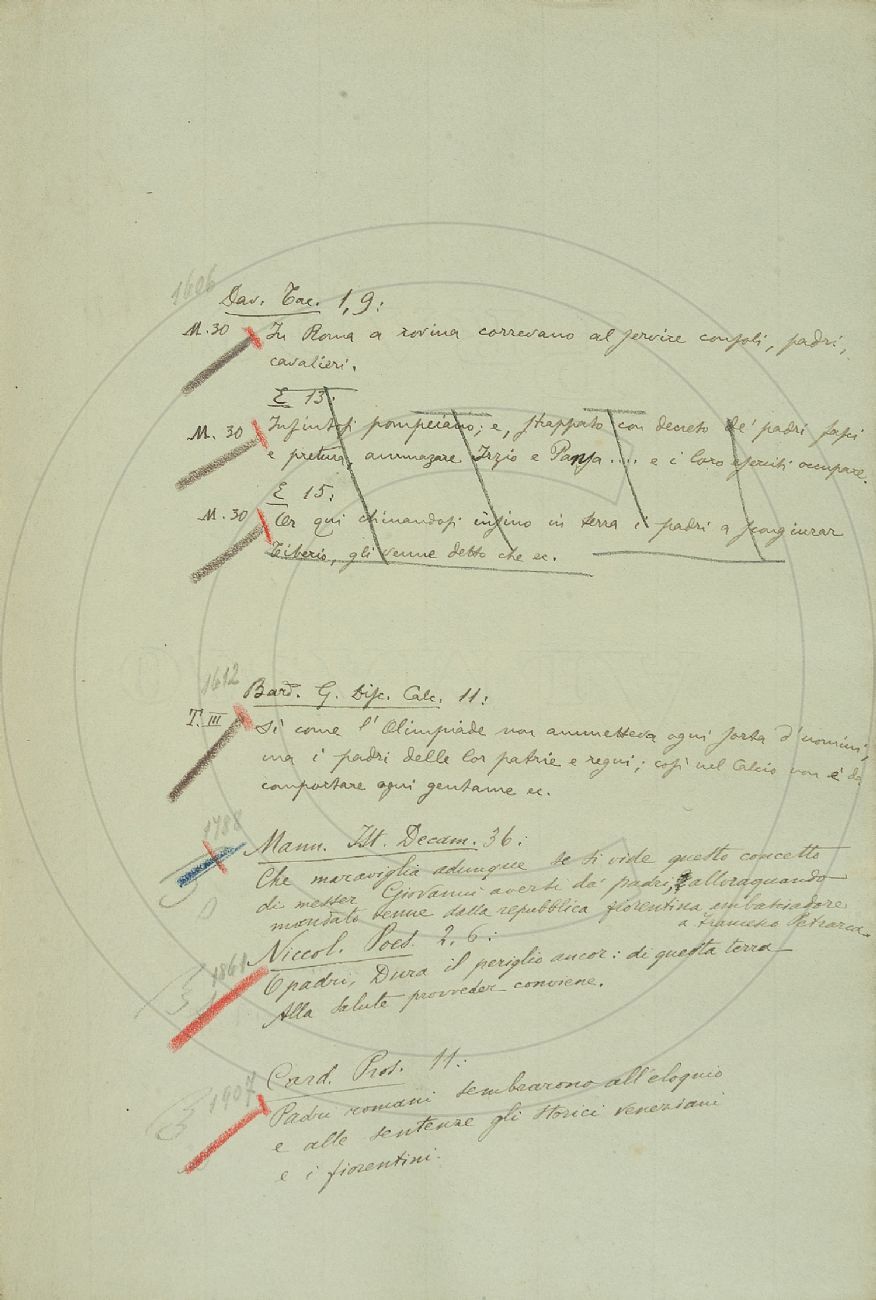 1606
Dav. Tac. 1, 9:
M. 30
In Roma a rovina correvano al servire consoli, padri,
cavalieri.
E 13:
M. 30
Infintosi pompeiano; e, strappato con decreto de' padri fasci
e pretura, ammazzare Irzio e Pansa .... e i loro eserciti occupare.
E 15:
M. 30
Or qui chinandosi infino in terra i padri a scongiurar
Tiberio, gli venne detto che ec.
1612
Bard. G. Disc. Calc. 11:
T. III
Sì come l'Olimpiade non ammetteva ogni sorta d'uomini,
ma i padri delle lor patrie e regni; così nel Calcio non è da
comportare ogni gentame ec.
1788
Mann. Ist. Decam. 36:
Che maraviglia adunque se si vide questo concetto
di messer Giovanni aversi da' padri, alloraquando
mandato venne dalla repubblica fiorentina ambasciadore
a Francesco Petrarca.
1861
Niccol. Poes. 2, 6:
O padri, Dura il periglio ancor: di questa terra
Alla salute provveder conviene.
1907
Card. Pros. 11:
Padri romani sembrarono all'eloquio
e alle sentenze gli storici veneziani
e i fiorentini.